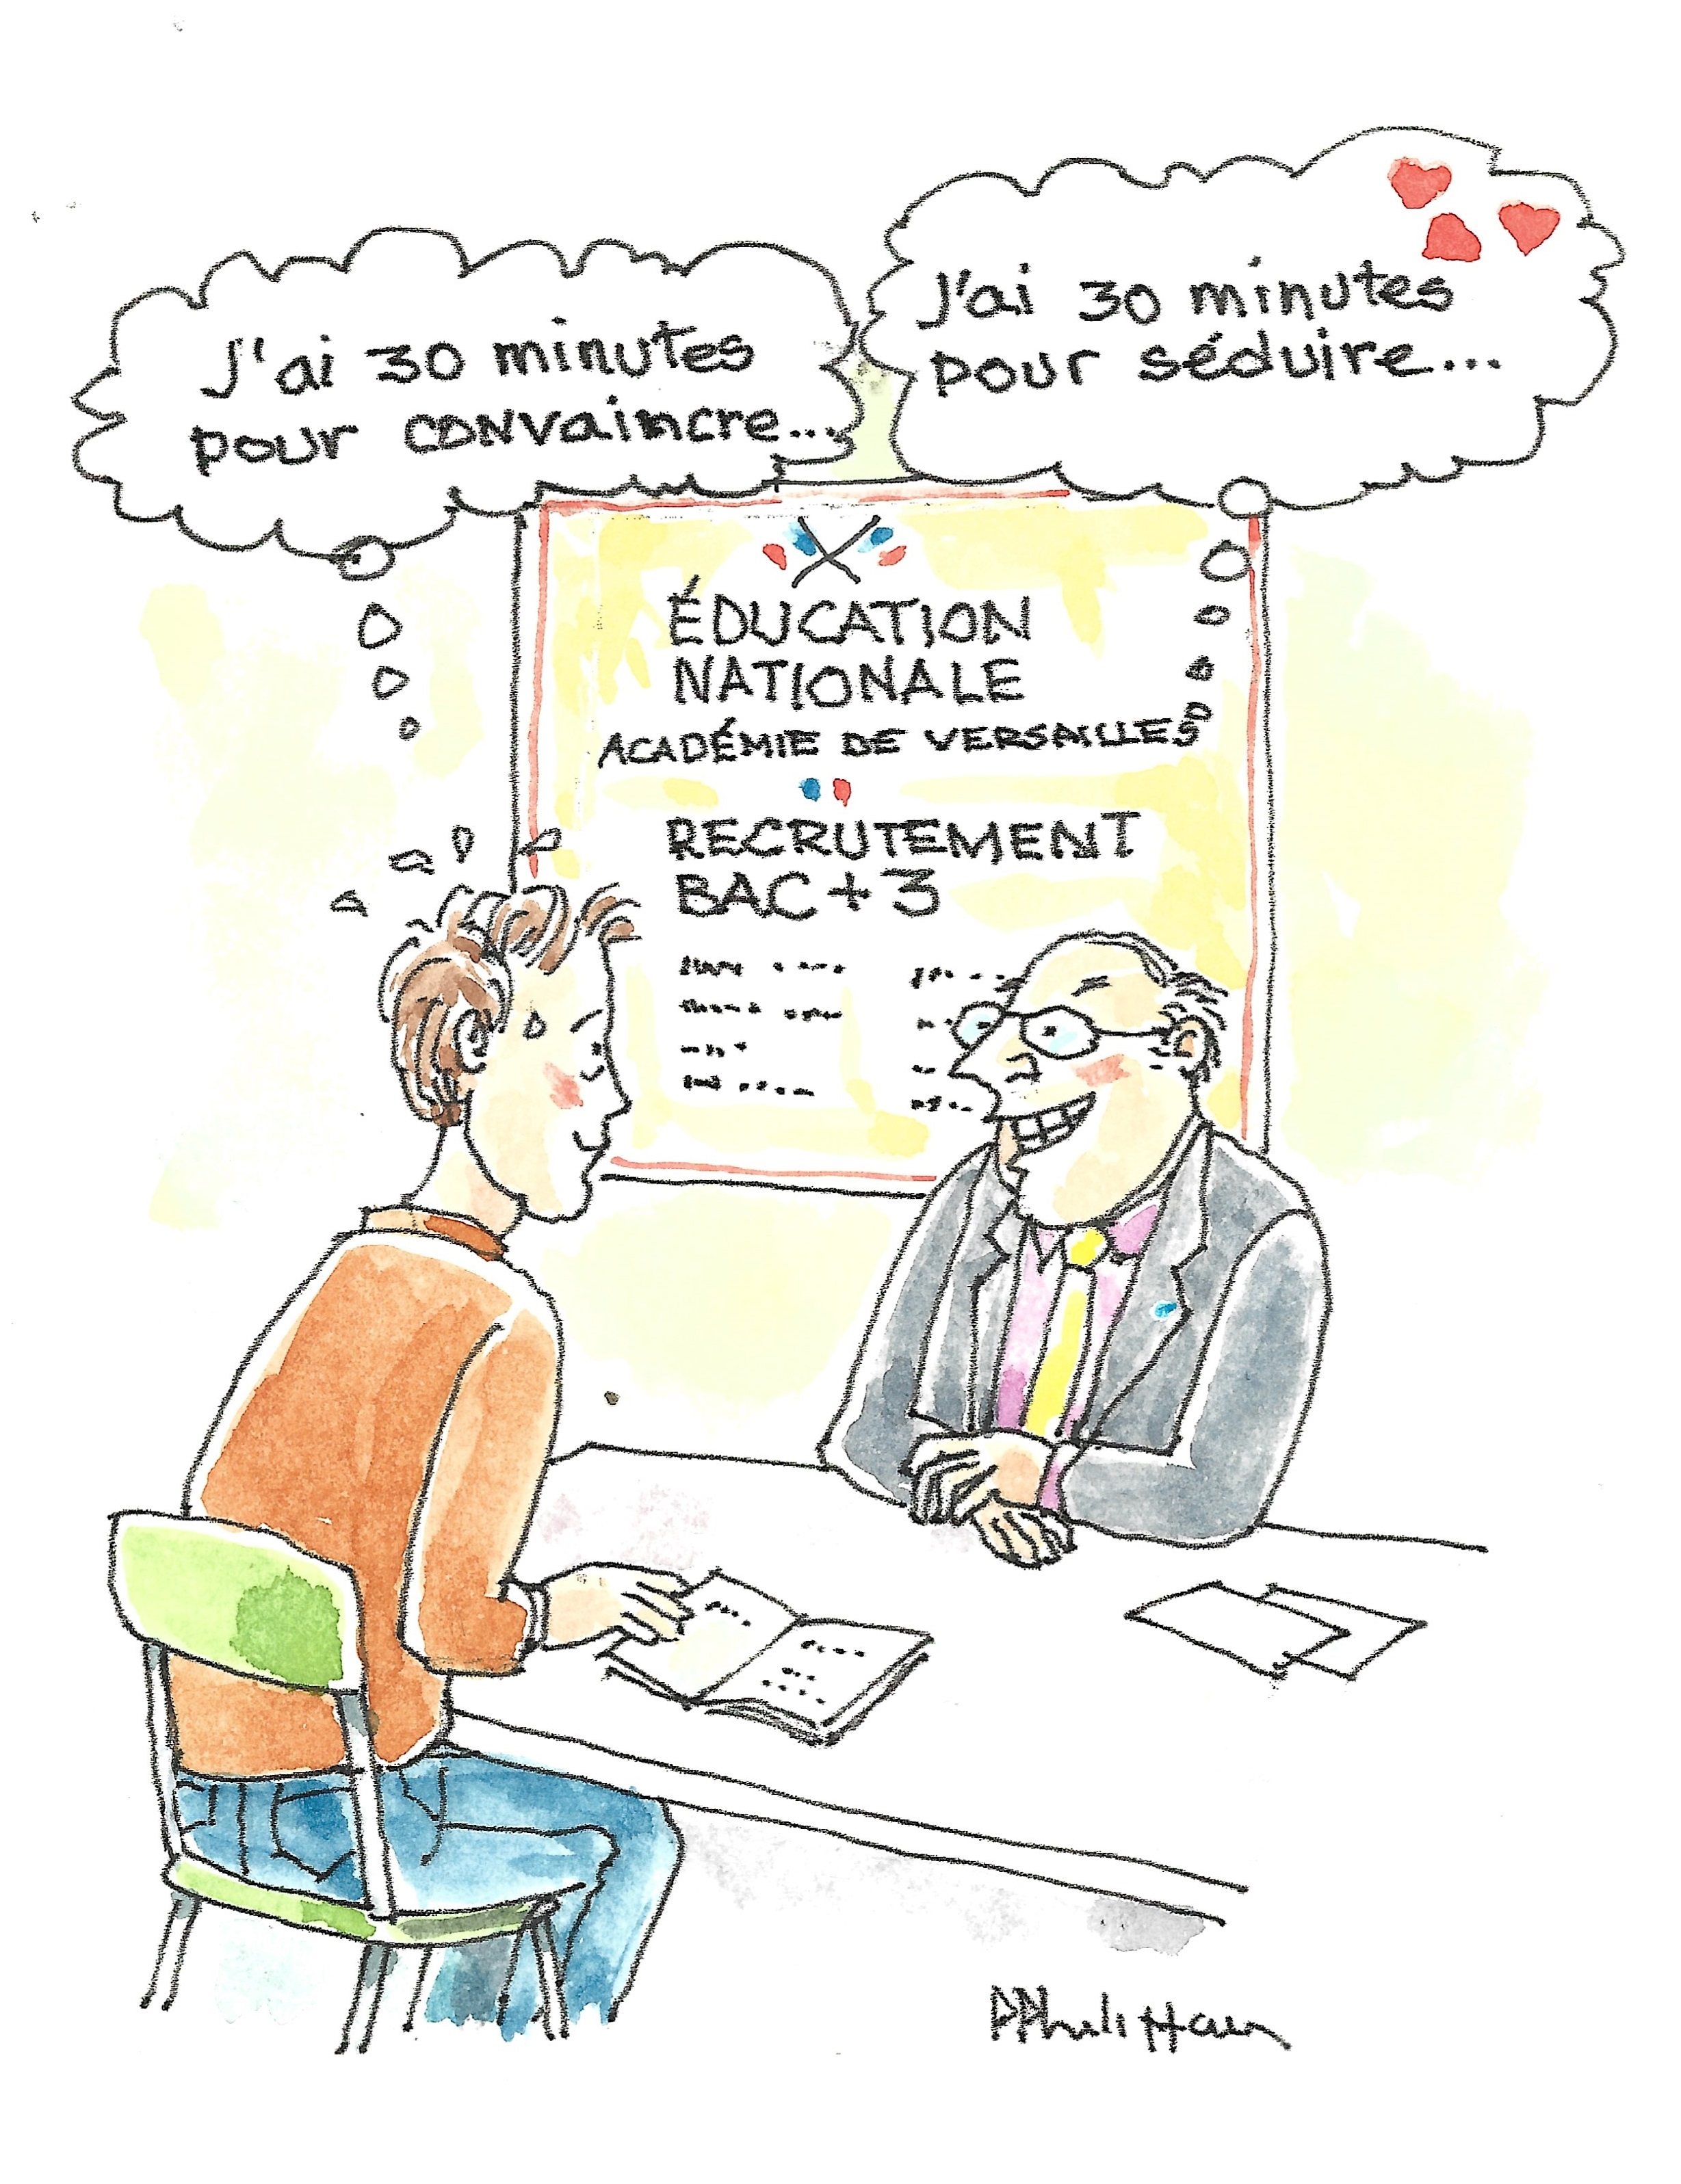 J'ai 30 minutes
pour convaincre...
J'ai 30 minutes
pour séduire...
ÉDUCATION
NATIONALE
ACADÉMIE DE VERSAILLES
RECRUTEMENT
BAC+3